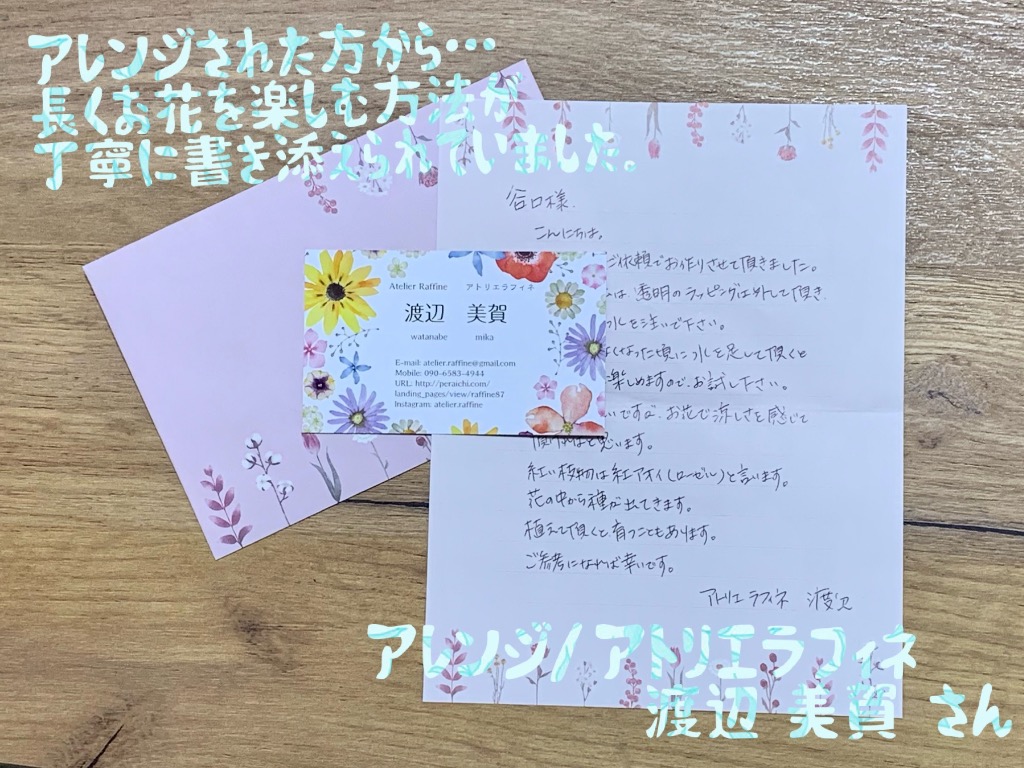 アレンジされた方から…
長くお花を楽しむ方法が
丁寧に書き添えられていました。
谷口様
こんにちは。
ご依頼でお作りさせて頂きました。
は 透明のラッピングは外して頂き
水を注いで下さい。
なくなった頃に水を足して頂くと
楽しめますので、お試し下さい。
いですが、お花で涼しさを感じて
頂ければと思います。
紅い枝物は紅アオイ(ローゼル)と言います。
花の中から種が出てきます。
植えて頂くと育つこともあります。
ご参考になれば幸いです。
アトリエ ラフィネ 渡辺
Atelier Raffine アトリエラフィネ
渡辺 美賀
watanabe mika
E-mail: atelier.raffine@gmail.com
Mobile: 090-6583-4944
URL: http://peraichi.com/
landing_pages/view/raffine87
Instagram: atelier.raffine
アレンジ/アトリエラフィネ
渡辺 美賀 さん